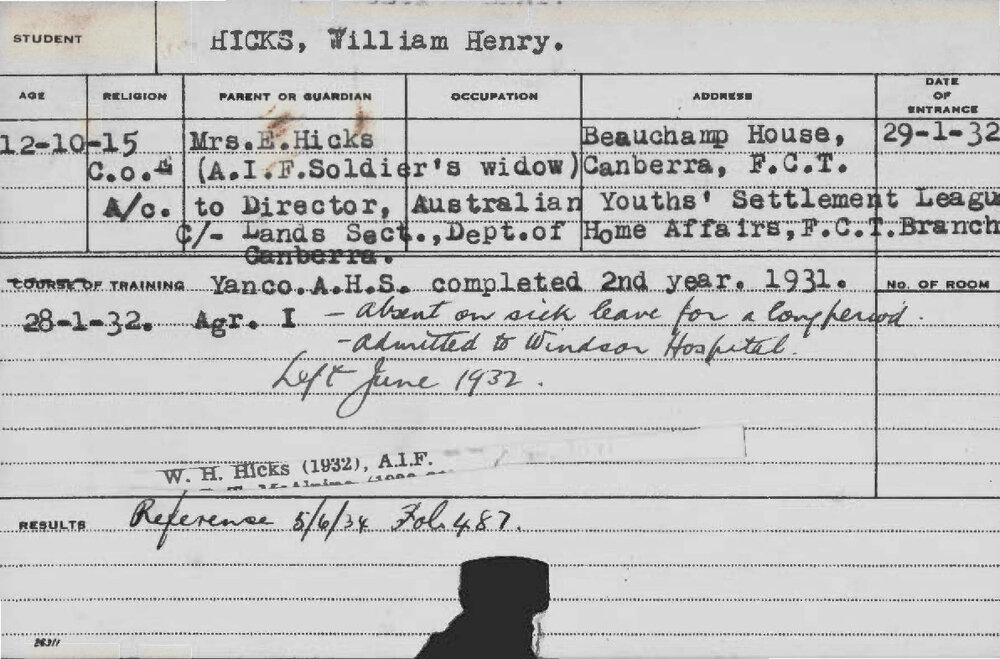 STUDENT HICKS, William Henry.
AGE RELIGION PARENT OR GUARDIAN OCCUPATION ADDRESS DATE OF ENTRANCE
12-10-15 Mrs.E.Hicks Beauchamp House, 29-1-32
C.o.E (A.I.F.Soldier's widow) Canberra, F.C.T.
A/c. to Director, Australian Youths' Settlement Leagu
C/- Lands Sect., Dept.of Home Affairs, F.C.T.Branch
Canberra.
COURSE OF TRAINING Yanco.A.H.S. completed 2nd year. 1931. NO. OF ROOM
28-1-32. Agr. I - Absent on sick leave for a long period.
- Admitted to Windsor Hospital.
Left June 1932.
W. H. Hicks (1932), A.I.F.
RESULTS Reference 5/6/34 Fol. 487.